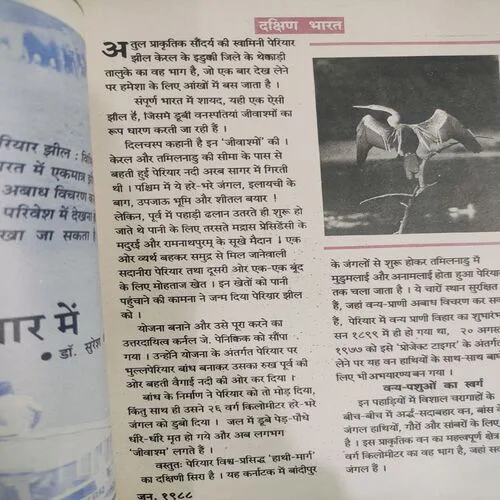 रियार झील : वि
रत में एकमात्र
अबाध विचरण क
परिवेश में देखन
खा जा सकता
ार में
• डॉ. सुरेश
दक्षिण भारत
अतुल प्राकृतिक सौंदर्य की स्वामिनी पेरियार
झील केरल के इडुक्की जिले के थेकाड़ी
तालुके का वह भाग है, जो एक बार देख लेने
पर हमेशा के लिए आंखों में बस जाता है ।
संपूर्ण भारत में शायद, यही एक ऐसी
झील है, जिसमें डूबी वनस्पतियां जीवाश्मों का
रूप धारण करती जा रही हैं ।
दिलचस्प कहानी है इन 'जीवाश्मों' की ।
केरल और तमिलनाडु की सीमा के पास से
बहती हुई पेरियार नदी अरब सागर में गिरती
थी । पश्चिम में ये हरे-भरे जंगल, इलायची के
बाग, उपजाऊ भूमि और शीतल बयार !
लेकिन, पूर्व में पहाड़ी ढलान उतरते ही शुरू हो
जाते थे पानी के लिए तरसते मद्रास प्रेसिडेंसी के
मदुरई और रामनाथपुरम् के सूखे मैदान । एक
ओर व्यर्थ बहकर समुद्र से मिल जानेवाली
सदानीरा पेरियार तथा दूसरी ओर एक-एक बूंद
के लिए मोहताज खेत । इन खेतों को पानी
पहुंचाने की कामना ने जन्म दिया पेरियार झील
को ।
योजना बनाने और उसे पूरा करने का
उत्तरदायित्व कर्नल जे. पेनिकिक को सौंपा
गया । उन्होंने योजना के अंतर्गत पेरियार पर
भुल्लपेरियार बांध बनाकर उसका रुख पूर्व की
ओर बहती वैगाई नदी की ओर कर दिया ।
बांध के निर्माण ने पेरियार को तो मोड़ दिया,
किंतु साथ ही उसने २६ वर्ग किलोमीटर हरे-भरे
जंगल को डुबो दिया । जल में डूबे पेड़-पौधे
धीरे-धीरे मृत हो गये और अब लगभग
'जीवाश्म' लगते हैं ।
वस्तुतः पेरियार विश्व-प्रसिद्ध 'हाथी-मार्ग'
का दक्षिणी सिरा है । यह कर्नाटक में बांदीपुर
जून, १९८८
के जंगलों से शुरू होकर तमिलनाडु में
मुडुमलाई और अनामलाई होता हुआ पेरियार
तक चला जाता है । ये चारों स्थान सुरक्षित
हैं, जहां वन्य-प्राणी अबाध विचरण कर स
हैं, पेरियार में वन्य प्राणी विहार का शुभारंभ
सन १८९९ में ही हो गया था, २० अगस
१९७७ को इसे 'प्रोजेक्ट टाइगर' के अंतर्ग
लेने पर यह वन हाथियों के साथ-साथ बाघ
लिए भी अभयारण्य बन गया ।
वन्य-पशुओं का स्वर्ग
इन पहाड़ियों में विशाल चरागाहों के
बीच-बीच में अर्द्ध-सदाबहार वन, बांस
जंगल हाथियों, गौरों और सांबरों के लिए
है । इस प्राकृतिक वन का महत्वपूर्ण क्षेत्र
वर्ग किलोमीटर का वह भाग है, जहां सद
जंगल हैं ।